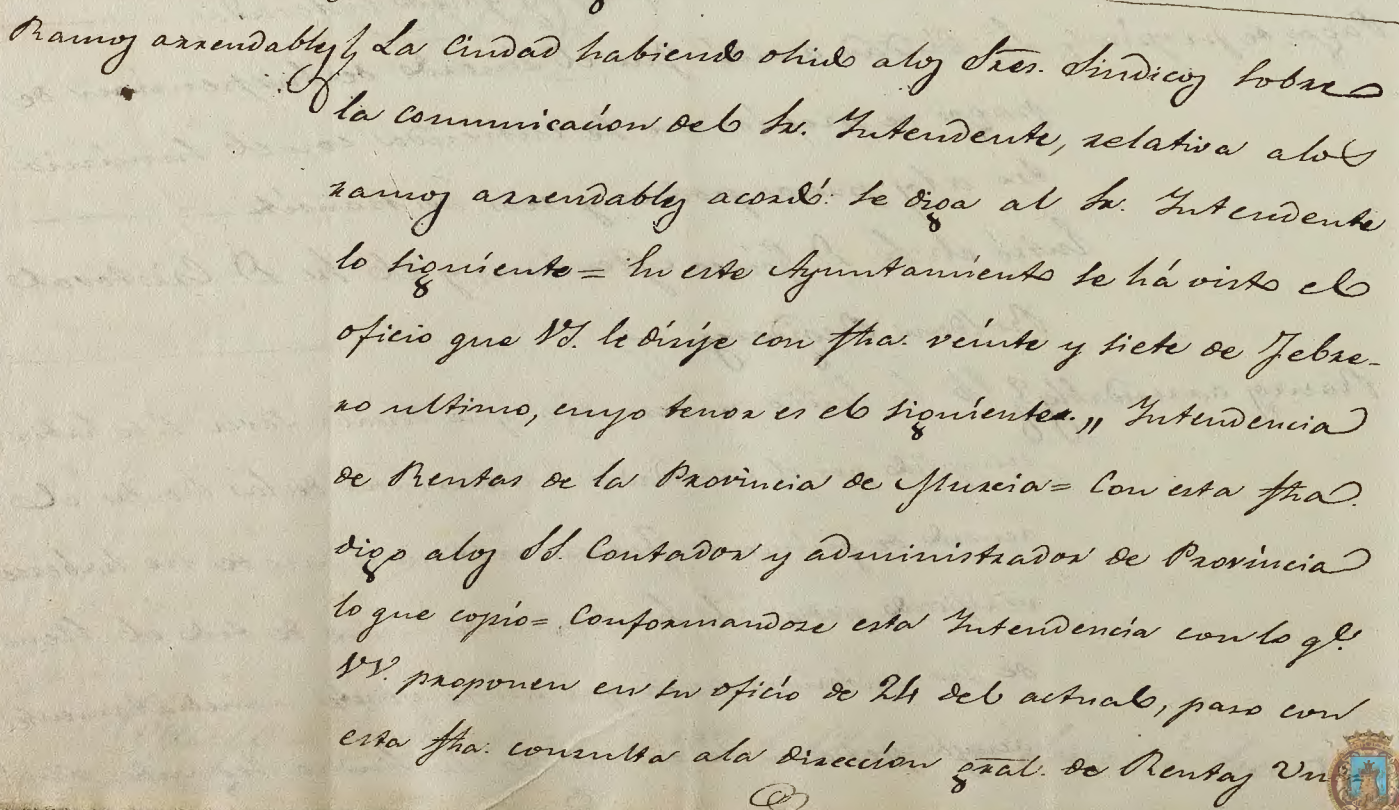 Ramos arrendables La Ciudad habiendo ohido alos Sres. Sindicos sobre
la comunicacion del Sr. Intendente, relativa alos
ramos arrendables acordó: se diga al Sr. Intendente
lo siguiente = En este Ayuntamiento se há visto el
oficio que VS. le dirije con fha. veinte y siete de Febre-
ro ultimo, cuyo tenor es el siguiente. „ Intendencia
de Rentas de la Provincia de Murcia = Con esta fha.
digo alos SS. Contador y administrador de Provincia
lo que copio = Conformandose esta Intendencia con lo qe.
VV. proponen en su oficio de 24 del actual, paso con
esta fha. consulta ala direccion gral. de Rentas Un